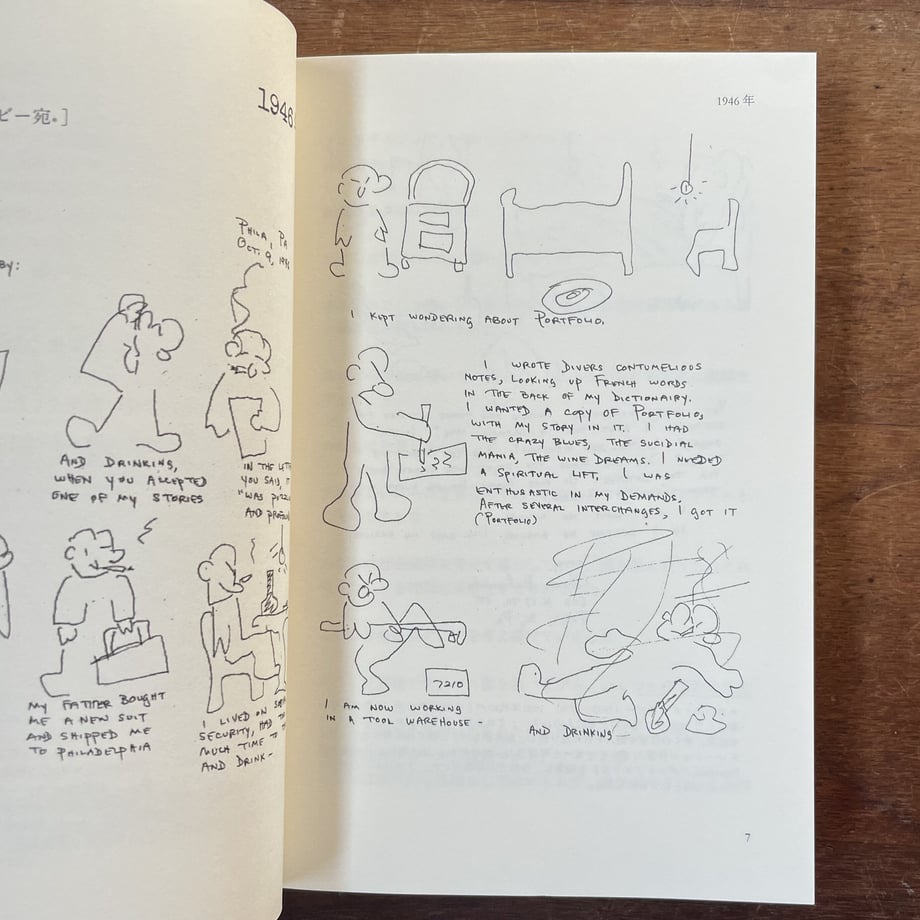 ビー宛。]
1946
BY:
PHILA, PA
OCT. 9, 1946
AND DRINKING,
WHEN YOU ACCEPTED
ONE OF MY STORIES
IN THE
YOU SAID,
"WAS
AND
MY FATHER BOUGHT
ME A NEW SUIT
AND SHIPPED ME
TO PHILADELPHIA
I LIVED ON
SECURITY, HAD
MUCH TIME TO
AND DRINK-
1946 年
I KEPT WONDERING ABOUT PORTFOLIO.
I WROTE DIVERS CONTUMELIOUS
NOTES, LOOKING UP FRENCH WORDS
IN THE BACK OF MY DICTIONAIRY.
I WANTED A COPY OF PORTFOLIO,
WITH MY STORY IN IT. I HAD
THE CRAZY BLUES, THE SUCIDIAL
MANIA, THE WINE DREAMS. I NEEDED
A SPIRITUAL LIFT. I WAS
ENTHUSASTIC IN MY DEMANDS.
AFTER SEVERAL INTERCHANGES, I GOT IT
(PORTFOLIO)
7210
I AM NOW WORKING
IN A TOOL WAREHOUSE -
AND DRINKING-
7